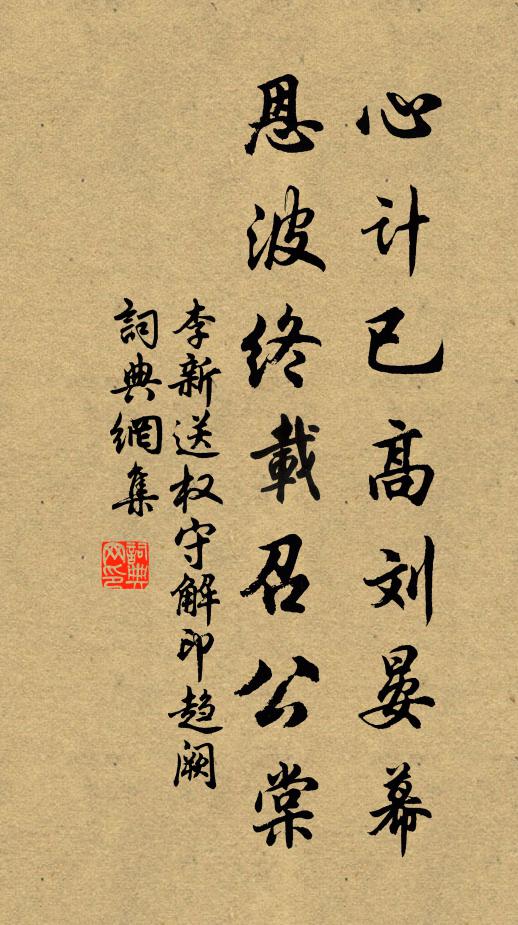 心计已高刘晏幕
恩波终载召公棠
李新送权守解印趋阙
词典網集
詞典網印